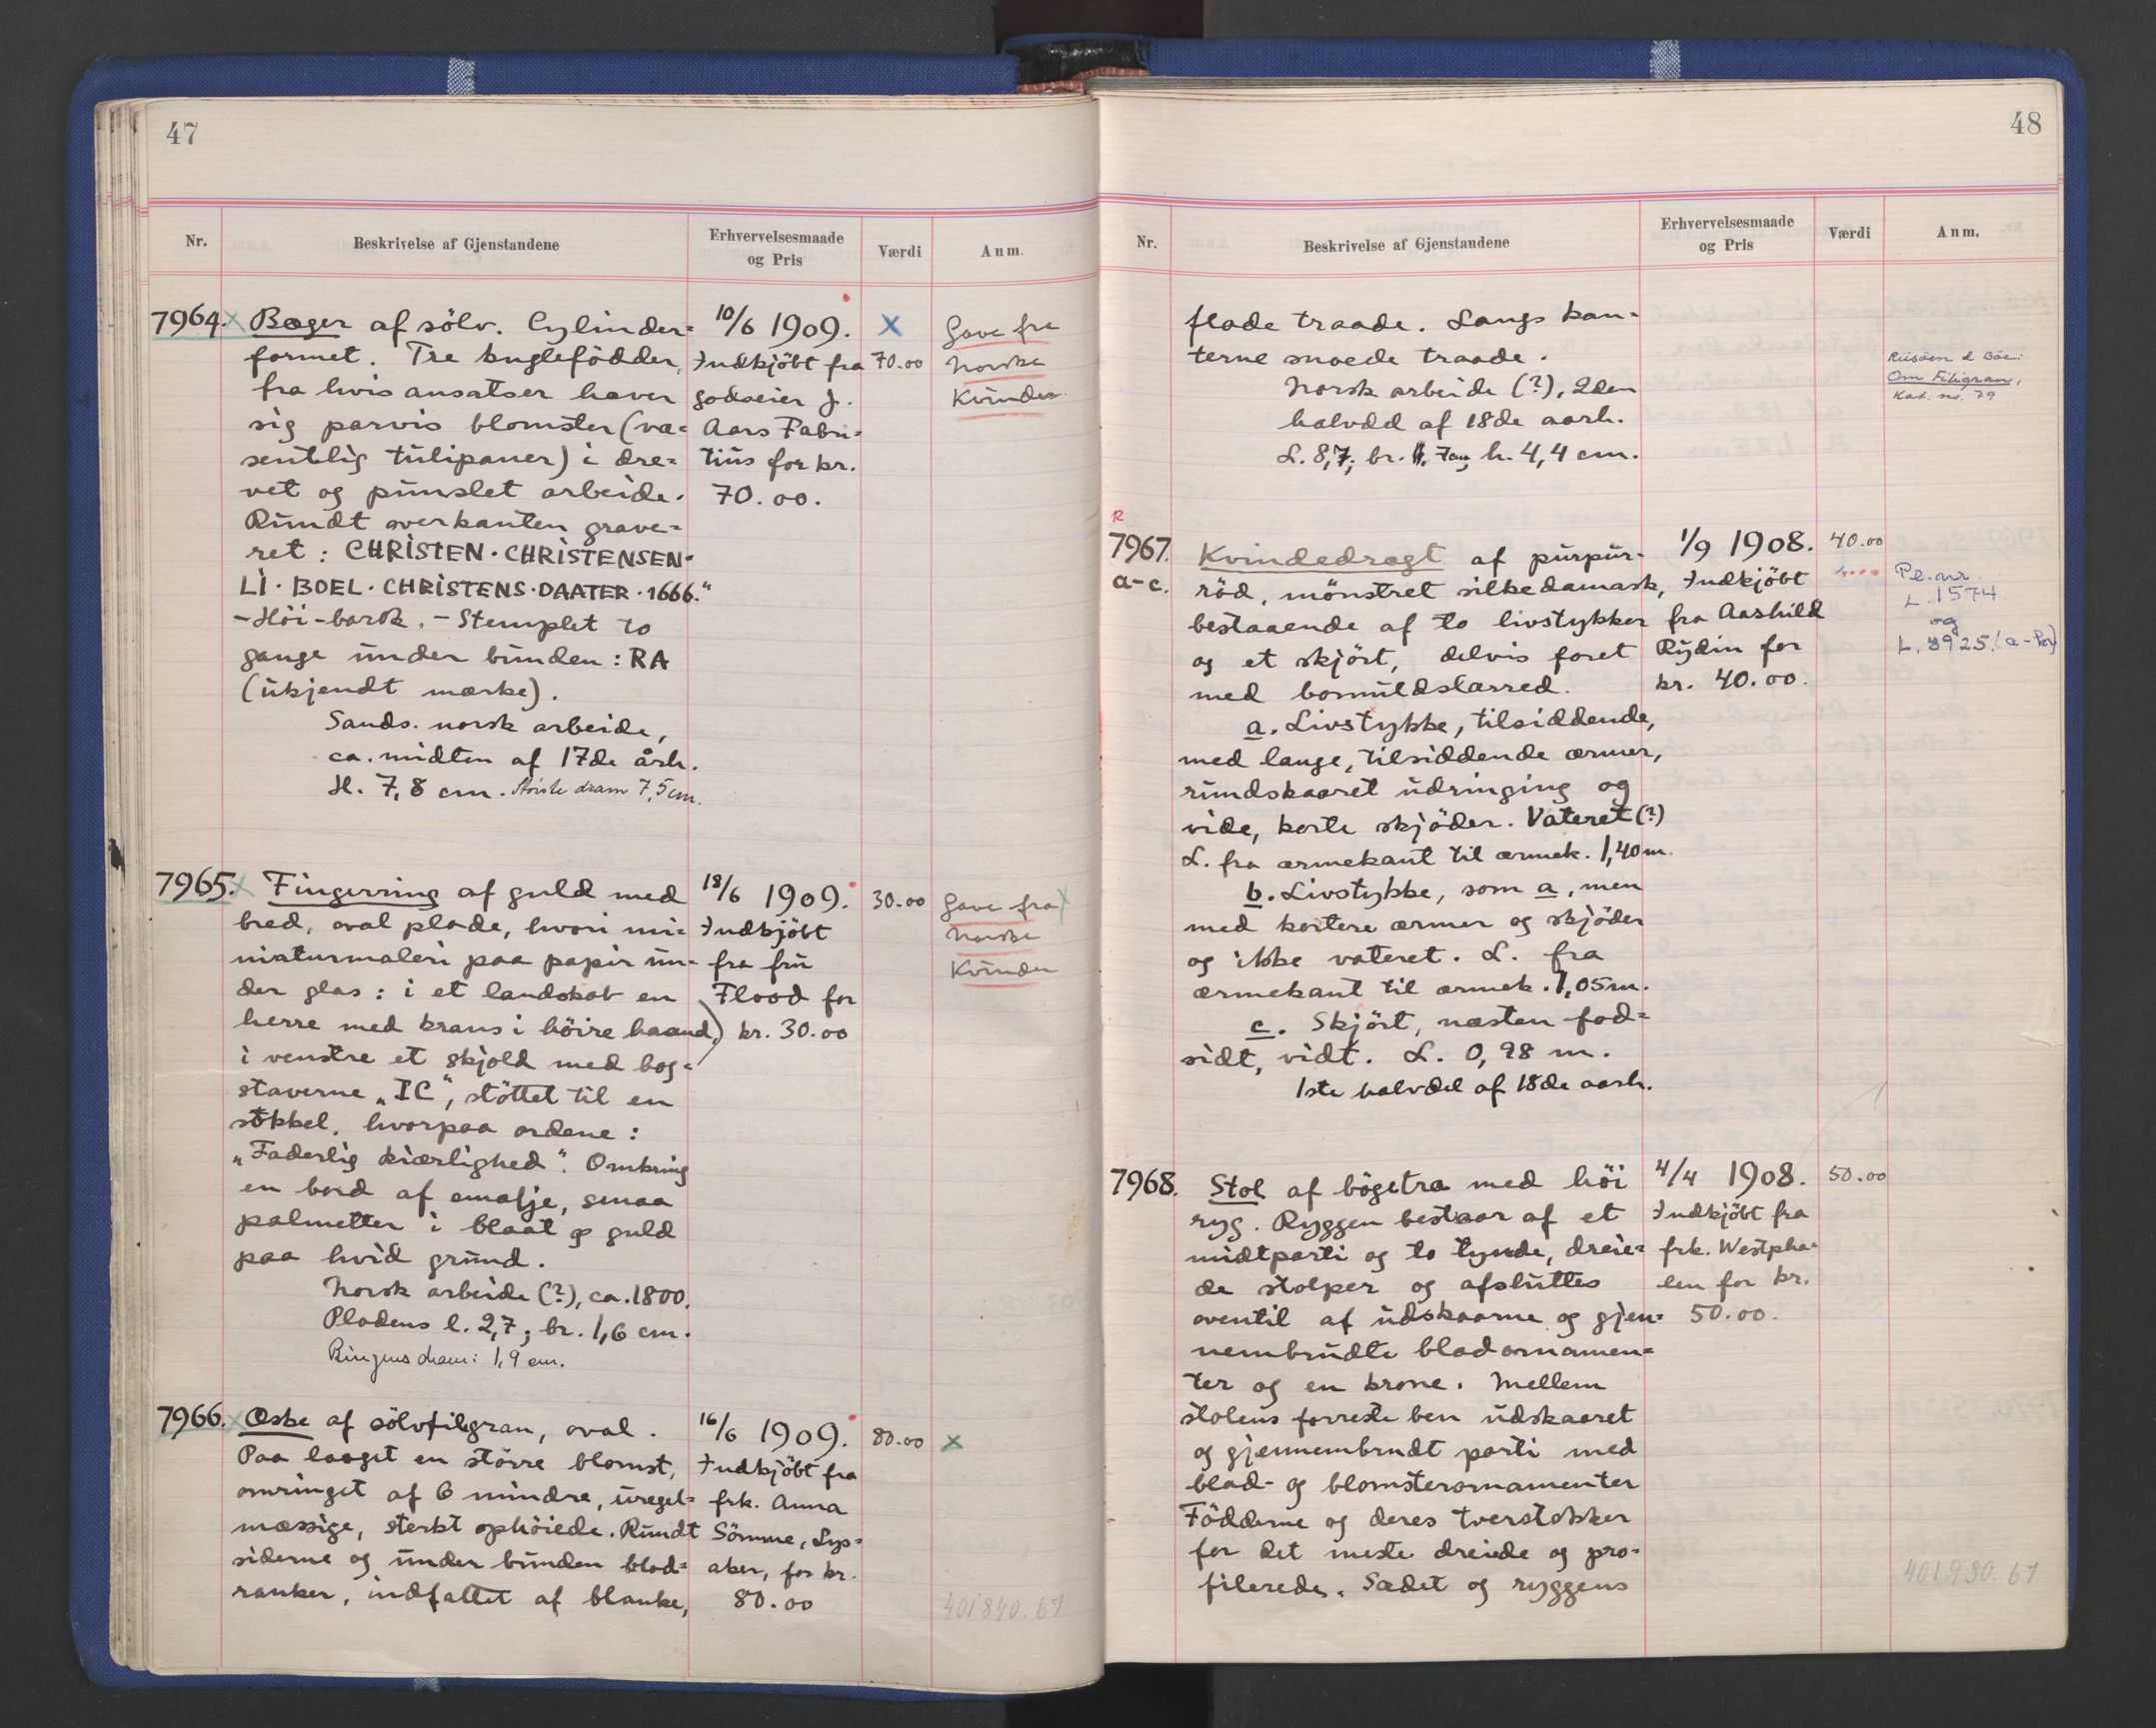 47
Nr.
Beskrivelse af Gjenstandene
Erhvervelsesmaade
og Pris
Værdi
Anm.
7964.
Bæger af sölv. Cylinder=
formet. Tre kuglefödder,
fra hvis ansatser hæver
sig parvis blomster (væ=
sentlig tulipaner) i dre=
vet og punslet arbeide.
Rundt overkanten grave=
ret: CHRISTEN · CHRISTENSEN ·
LI · BOEL · CHRISTENS · DAATER · 1666."
- Höi-barok. - Stemplet to
gange under bunden: RA
(ukjendt mærke).
Sands. norsk arbeide,
ca. midten af 17de årh.
H. 7,8 cm. Störste diam 7,5 cm.
10/6 1909.
Indkjöbt fra
godseier J.
Aars Fabri=
tius for kr.
70.00.
X
70.00
Gave fra
Norske
Kvinder.
7965.
Fingerring af guld med
bred, oval plade, hvori mi=
niaturmaleri paa papir un=
der glas: i et landskab en
herre med krans i höire haand,)
i venstre et skjold med bog=
staverne „IC", stöttet til en
sokkel, hvorpaa ordene:
„Faderlig kiærlighed". Omkring
en bord af emalje, smaa
palmetter i blaat og guld
paa hvid grund.
Norsk arbeide (?), ca. 1800.
Pladens l. 2,7; br. 1,6 cm.
Ringens diam: 1,9 cm.
18/6 1909.
Indkjöbt
fra fru
Flood for
kr. 30.00
30.00
Gave fra
Norske
Kvinder
7966.
Æske af sölvfiligran, oval.
Paa laaget en större blomst,
omringet af 6 mindre, uregel=
mæssige, sterkt ophöiede. Rundt
siderne og under bunden blad=
ranker, indfattet af blanke,
16/6 1909.
Indkjöbt fra
frk. Anna
Sömme, Lys=
aker, for kr.
80.00
80.00
X
401840.67
48
Nr.
Beskrivelse af Gjenstandene
Erhvervelsesmaade
og Pris
Værdi
Anm.
flade traade. Langs kan=
terne snoede traade.
Norsk arbeide (?), 2den
halvdel af 18de aarh.
L. 8,7; br. 7 cm, h. 4,4 cm.
Riisöen & Böe:
Om Filigran,
Kat. no. 79
R
7967.
a-c.
Kvindedragt af purpur-
röd, mönstret silkedamask,
bestaaende af to livstykker
og et skjört, delvis foret
med bomuldslærred.
a. Livstykke, tilsiddende,
med lange, tilsiddende ærmer,
rundskaaret udringing og
vide, korte skjöder. Vateret (?)
L. fra ærmekant til ærmek. 1,40 m.
b. Livstykke, som a, men
med kortere ærmer og skjöder
og ikke vateret. L. fra
ærmekant til ærmek. 1,05 m.
c. Skjört, næsten fod=
sidt, vidt. L. 0,98 m.
1ste halvdel af 18de aarh.
1/9 1908.
Indkjöbt
fra Aashild
Rydin for
kr. 40.00.
40.00
Pl. nr.
L. 1574
og
L. 8925.
7968.
Stol af bögetræ med höi
ryg. Ryggen bestaar af et
midtparti og to tynde, dreie=
de stolper og afsluttes
oventil af udskaarne og gjen=
nembrudte bladornamen=
ter og en krone. Mellem
stolens forreste ben udskaaret
og gjennembrudt parti med
blad- og blomsterornamenter
Födderne og deres tverstokker
for det meste dreiede og pro=
filerede. Sædet og ryggens
4/4 1908.
Indkjöbt fra
frk. Westpha=
len for kr.
50.00.
50.00
401930.67